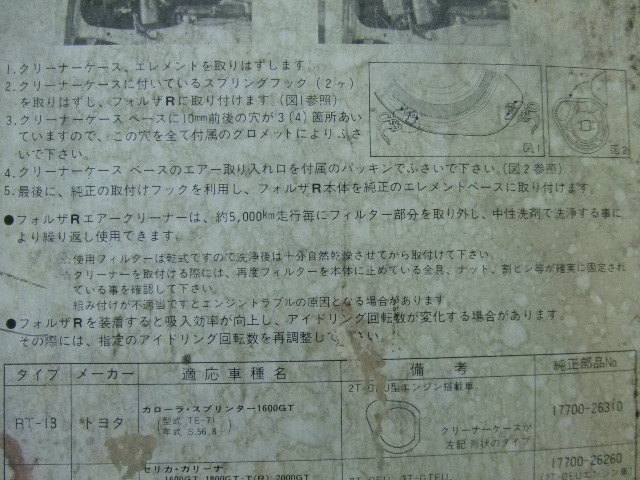 1. クリーナーケース、エレメントを取りはずします。
2. クリーナーケースに付いているスプリングフック（2ヶ）
を取りはずし、フォルザRに取り付けます。（図1参照）
3. クリーナーケース ベースに10mm前後の穴が3(4)箇所あい
ていますので、この穴を全て付属のグロメットによりふさ
いで下さい。
図1
図2
4. クリーナーケース ベースのエアー取り入れ口を付属のパッキンでふさいで下さい。（図2参照）
5. 最後に、純正の取付けフックを利用し、フォルザR本体を純正のエレメントベースに取り付けます。
●フォルザRエアークリーナーは、約5,000km走行毎にフィルター部分を取り外し、中性洗剤で洗浄する事に
より繰り返し使用できます。
使用フィルターは乾式ですので洗浄後は十分自然乾燥させてから取付けて下さい。
クリーナーを取付ける際には、再度フィルターを本体に止めている金具、ナット、割ピン等が確実に固定され
ている事を確認して下さい。
組み付けが不適当ですとエンジントラブルの原因となる場合があります。
●フォルザRを装着すると吸入効率が向上し、アイドリング回転数が変化する場合があります。
その際には、指定のアイドリング回転数を再調整して下さい。
タイプ メーカー 適応車種名 備考 純正部品No
RT-13 トヨタ カローラ・スプリンター1600GT
（型式 TE-71
年式 S.56.8~）
2T-GEU型エンジン搭載車
クリーナーケースが
左記 形状のタイプ
17700-26310
セリカ・カリーナ
1600GT 1800GT・T(R) 2000GT
17700-26260